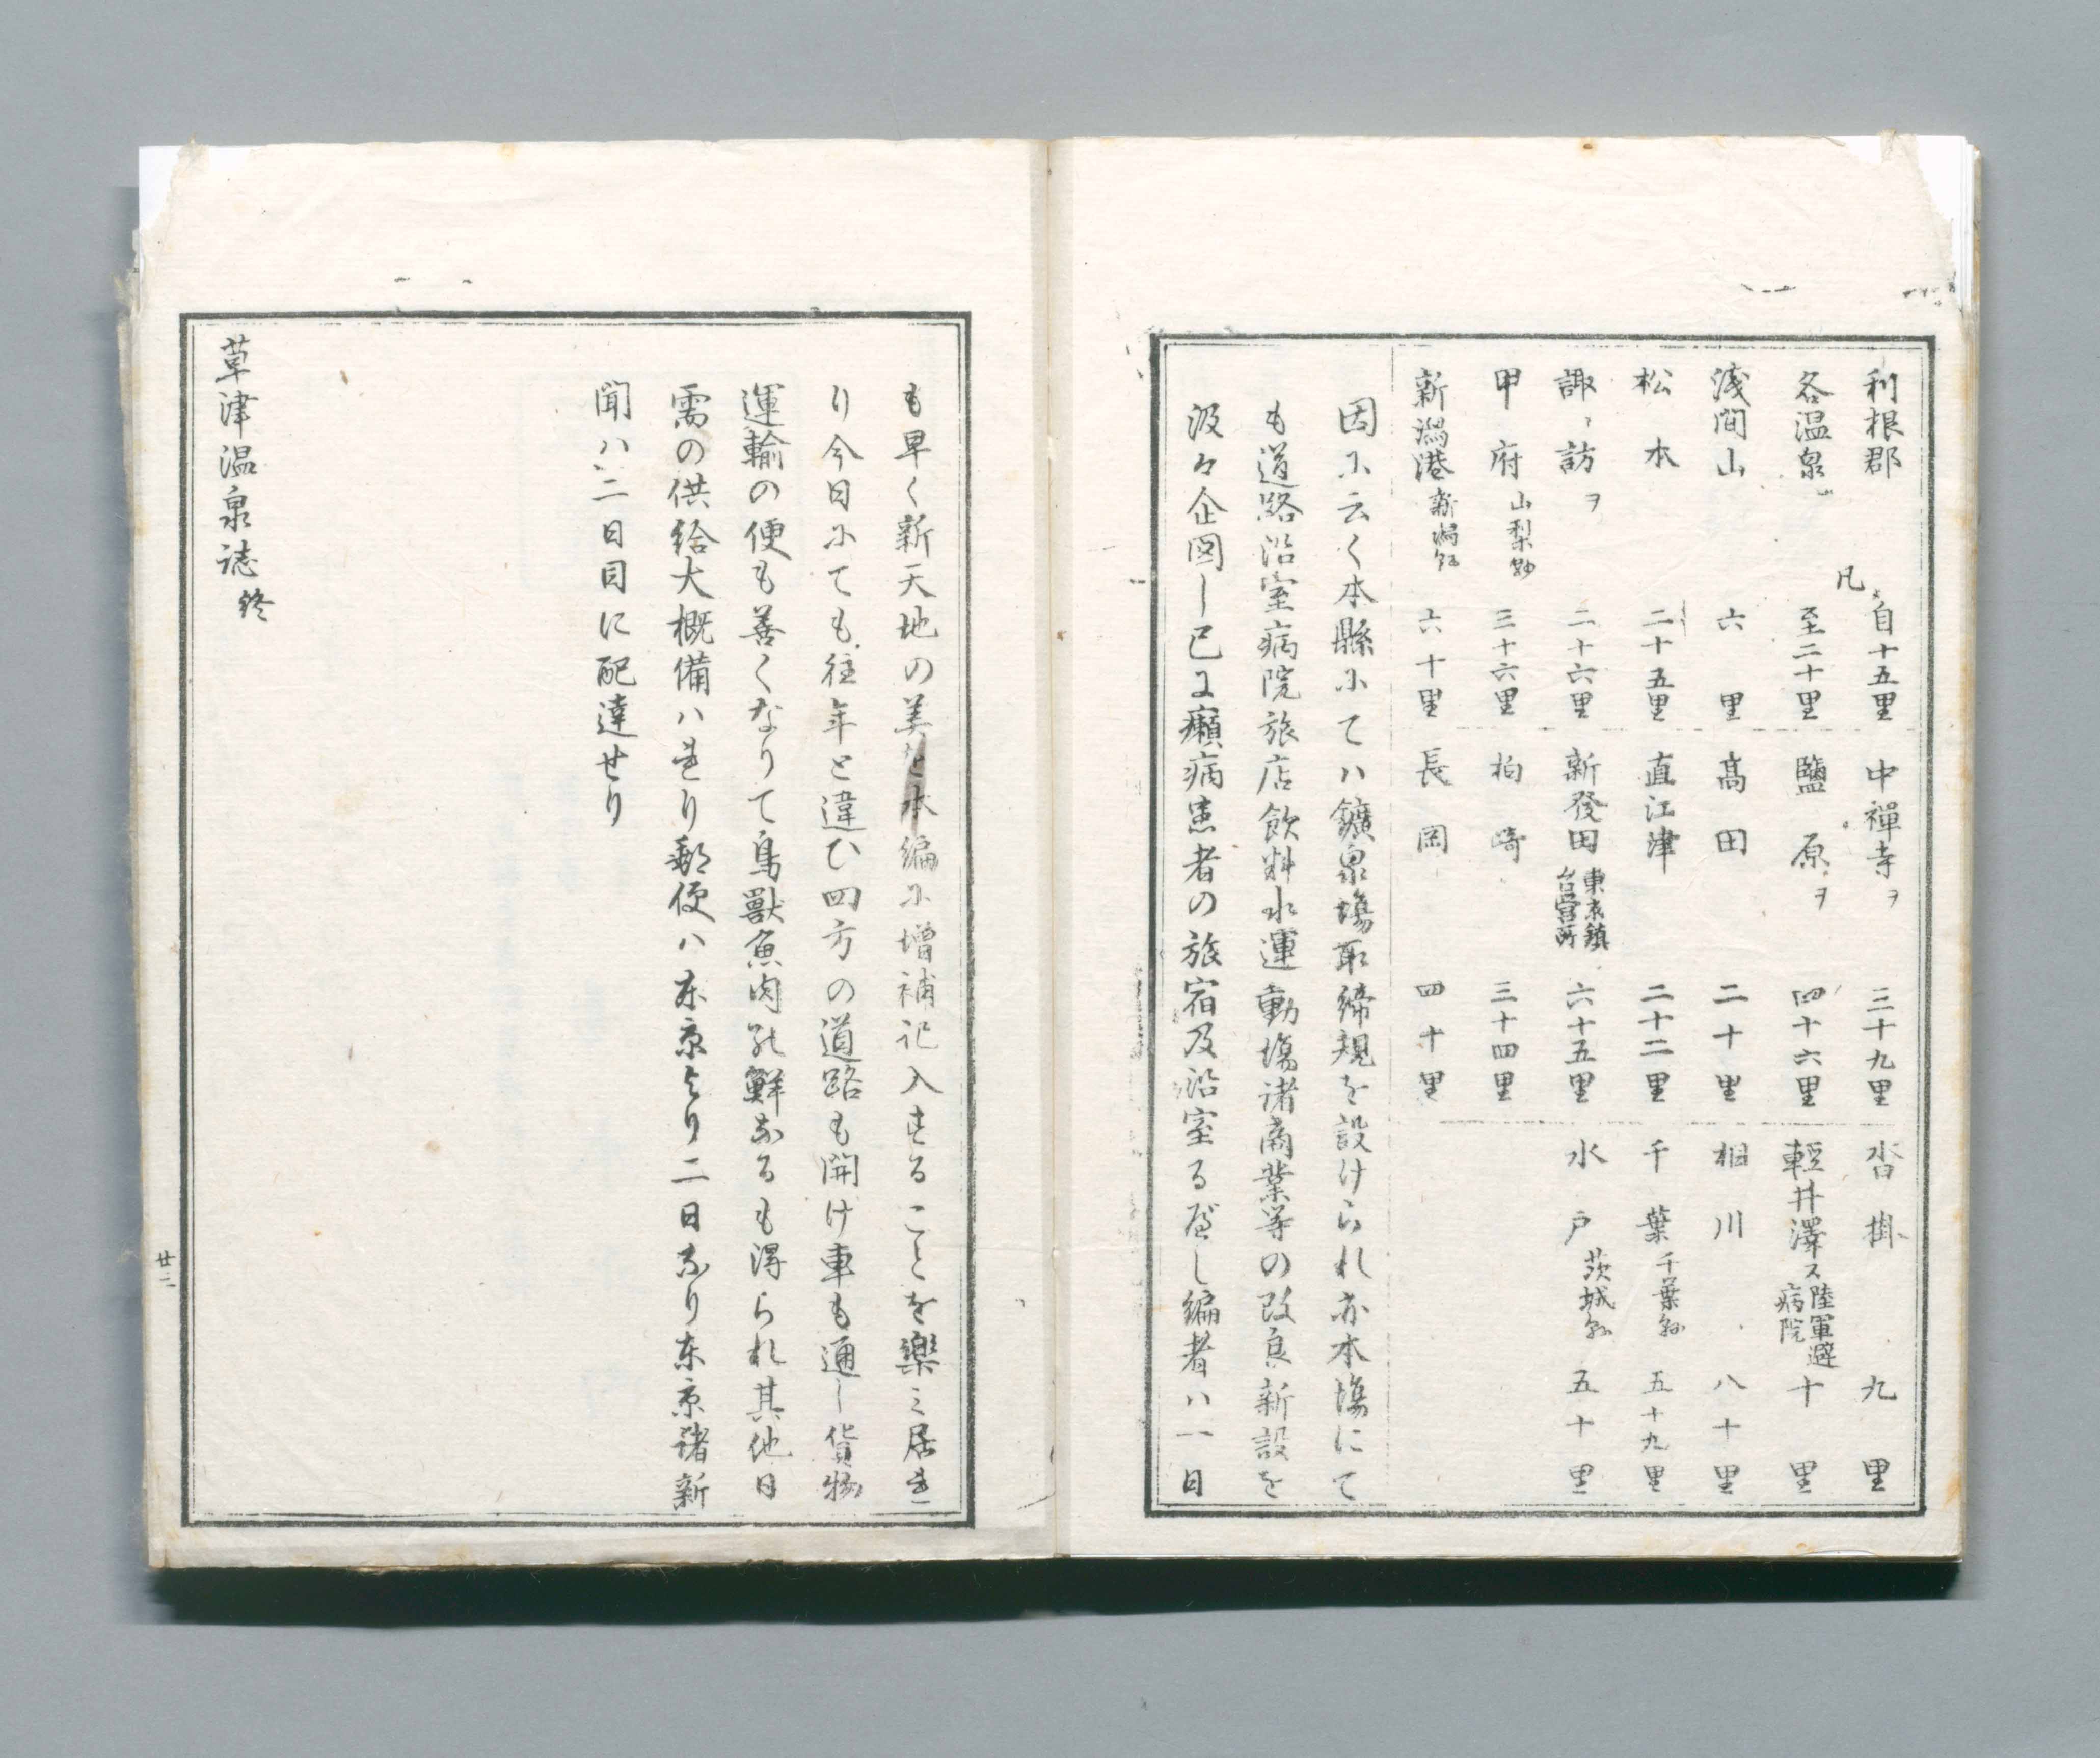 利根郡
各温泉
凡
自十五里
至二十里
淺間山 六里
松本 二十五里
諏訪 二十六里
甲府 山梨縣 三十六里
新潟港 新潟縣 六十里
中禪寺 三十九里
鹽原 四十六里
高田 二十里
直江津 二十二里
新發田 東京鎮台営所 六十五里
柏崎 三十四里
長岡 四十里
沓掛 九里
輕井澤 陸軍避病院 十里
相川 八十里
千葉 千葉縣 五十九里
水戸 茨城縣 五十里
因に云く本縣にてハ鑛泉塲取締規を設けられ亦本塲にて
も道路浴室病院旅店飲料水運動塲諸商業等の改良新設を
汲々企図し已に癩病患者の旅宿及浴室る
し編者ハ一日
も早く新天地の美を本編に増補記入することを樂ミ居
り今日にても往年と違ひ四方の道路も開け車も通し貨物
運輸の便も善くなりて鳥獸魚肉の鮮なるも得られ其他日
需の供給大概備ハれり郵便ハ東京より二日なり東京諸新
聞ハ二日目に配達せり
草津温泉誌 終
廿三